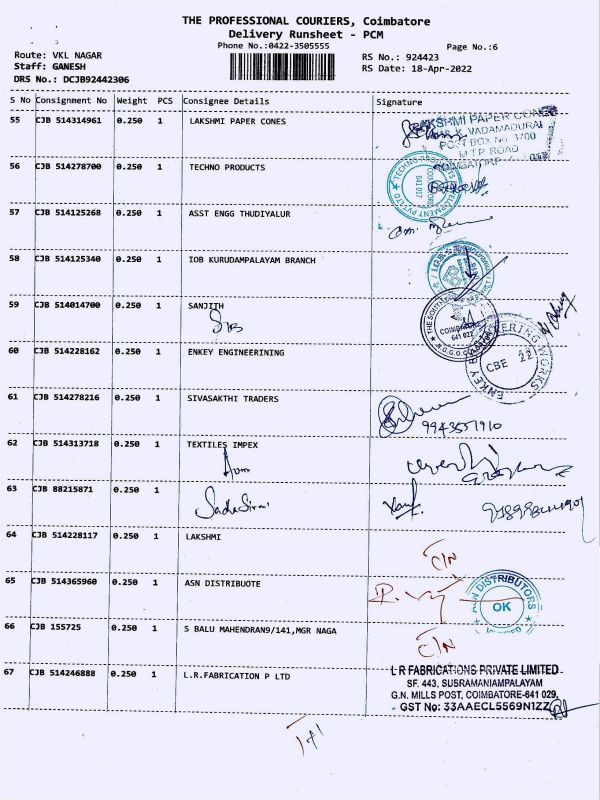 THE PROFESSIONAL COURIERS, Coimbatore
Delivery Runsheet - PCM
Phone No.:0422-3505555
Page No.:6
Route: VKL NAGAR
Staff: GANESH
DRS No.: DCJB92442306
RS No.: 924423
RS Date: 18-Apr-2022
S No Consignment No Weight PCS Consignee Details Signature
55 CJB 514314961 0.250 1 LAKSHMI PAPER CONES
KSHMI PAPER CONE
VADAMADURAI
POST BOX No. 3700
M.T.P. ROAD
COIMBATORE
56 CJB 514278700 0.250 1 TECHNO PRODUCTS
641 017
57 CJB 514125268 0.250 1 ASST ENGG THUDIYALUR
58 CJB 514125340 0.250 1 IOB KURUDAMPALAYAM BRANCH
59 CJB 514014700 0.250 1 SANJITH
COIMBATORE
641 022
60 CJB 514228162 0.250 1 ENKEY ENGINEERINING
CBE 22
61 CJB 514278216 0.250 1 SIVASAKTHI TRADERS
62 CJB 514313718 0.250 1 TEXTILES IMPEX
63 CJB 88215871 0.250 1
64 CJB 514228117 0.250 1 LAKSHMI
C/N
65 CJB 514365960 0.250 1 ASN DISTRIBUOTE
N DISTRIBUTORS
OK
66 CJB 155725 0.250 1 S BALU MAHENDRAN9/141,MGR NAGA
C/N
67 CJB 514246888 0.250 1 L.R.FABRICATION P LTD
L R FABRICATIONS PRIVATE LIMITED
SF. 443, SUSRAMANIAMPALAYAM
G.N. MILLS POST, COIMBATORE-641 029.
GST No: 33AAECL5569N1ZZ